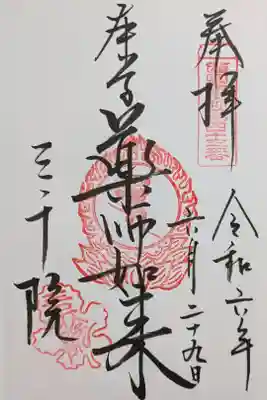 奉拝
令和六年
六月二十九日
薬師如来
三千院